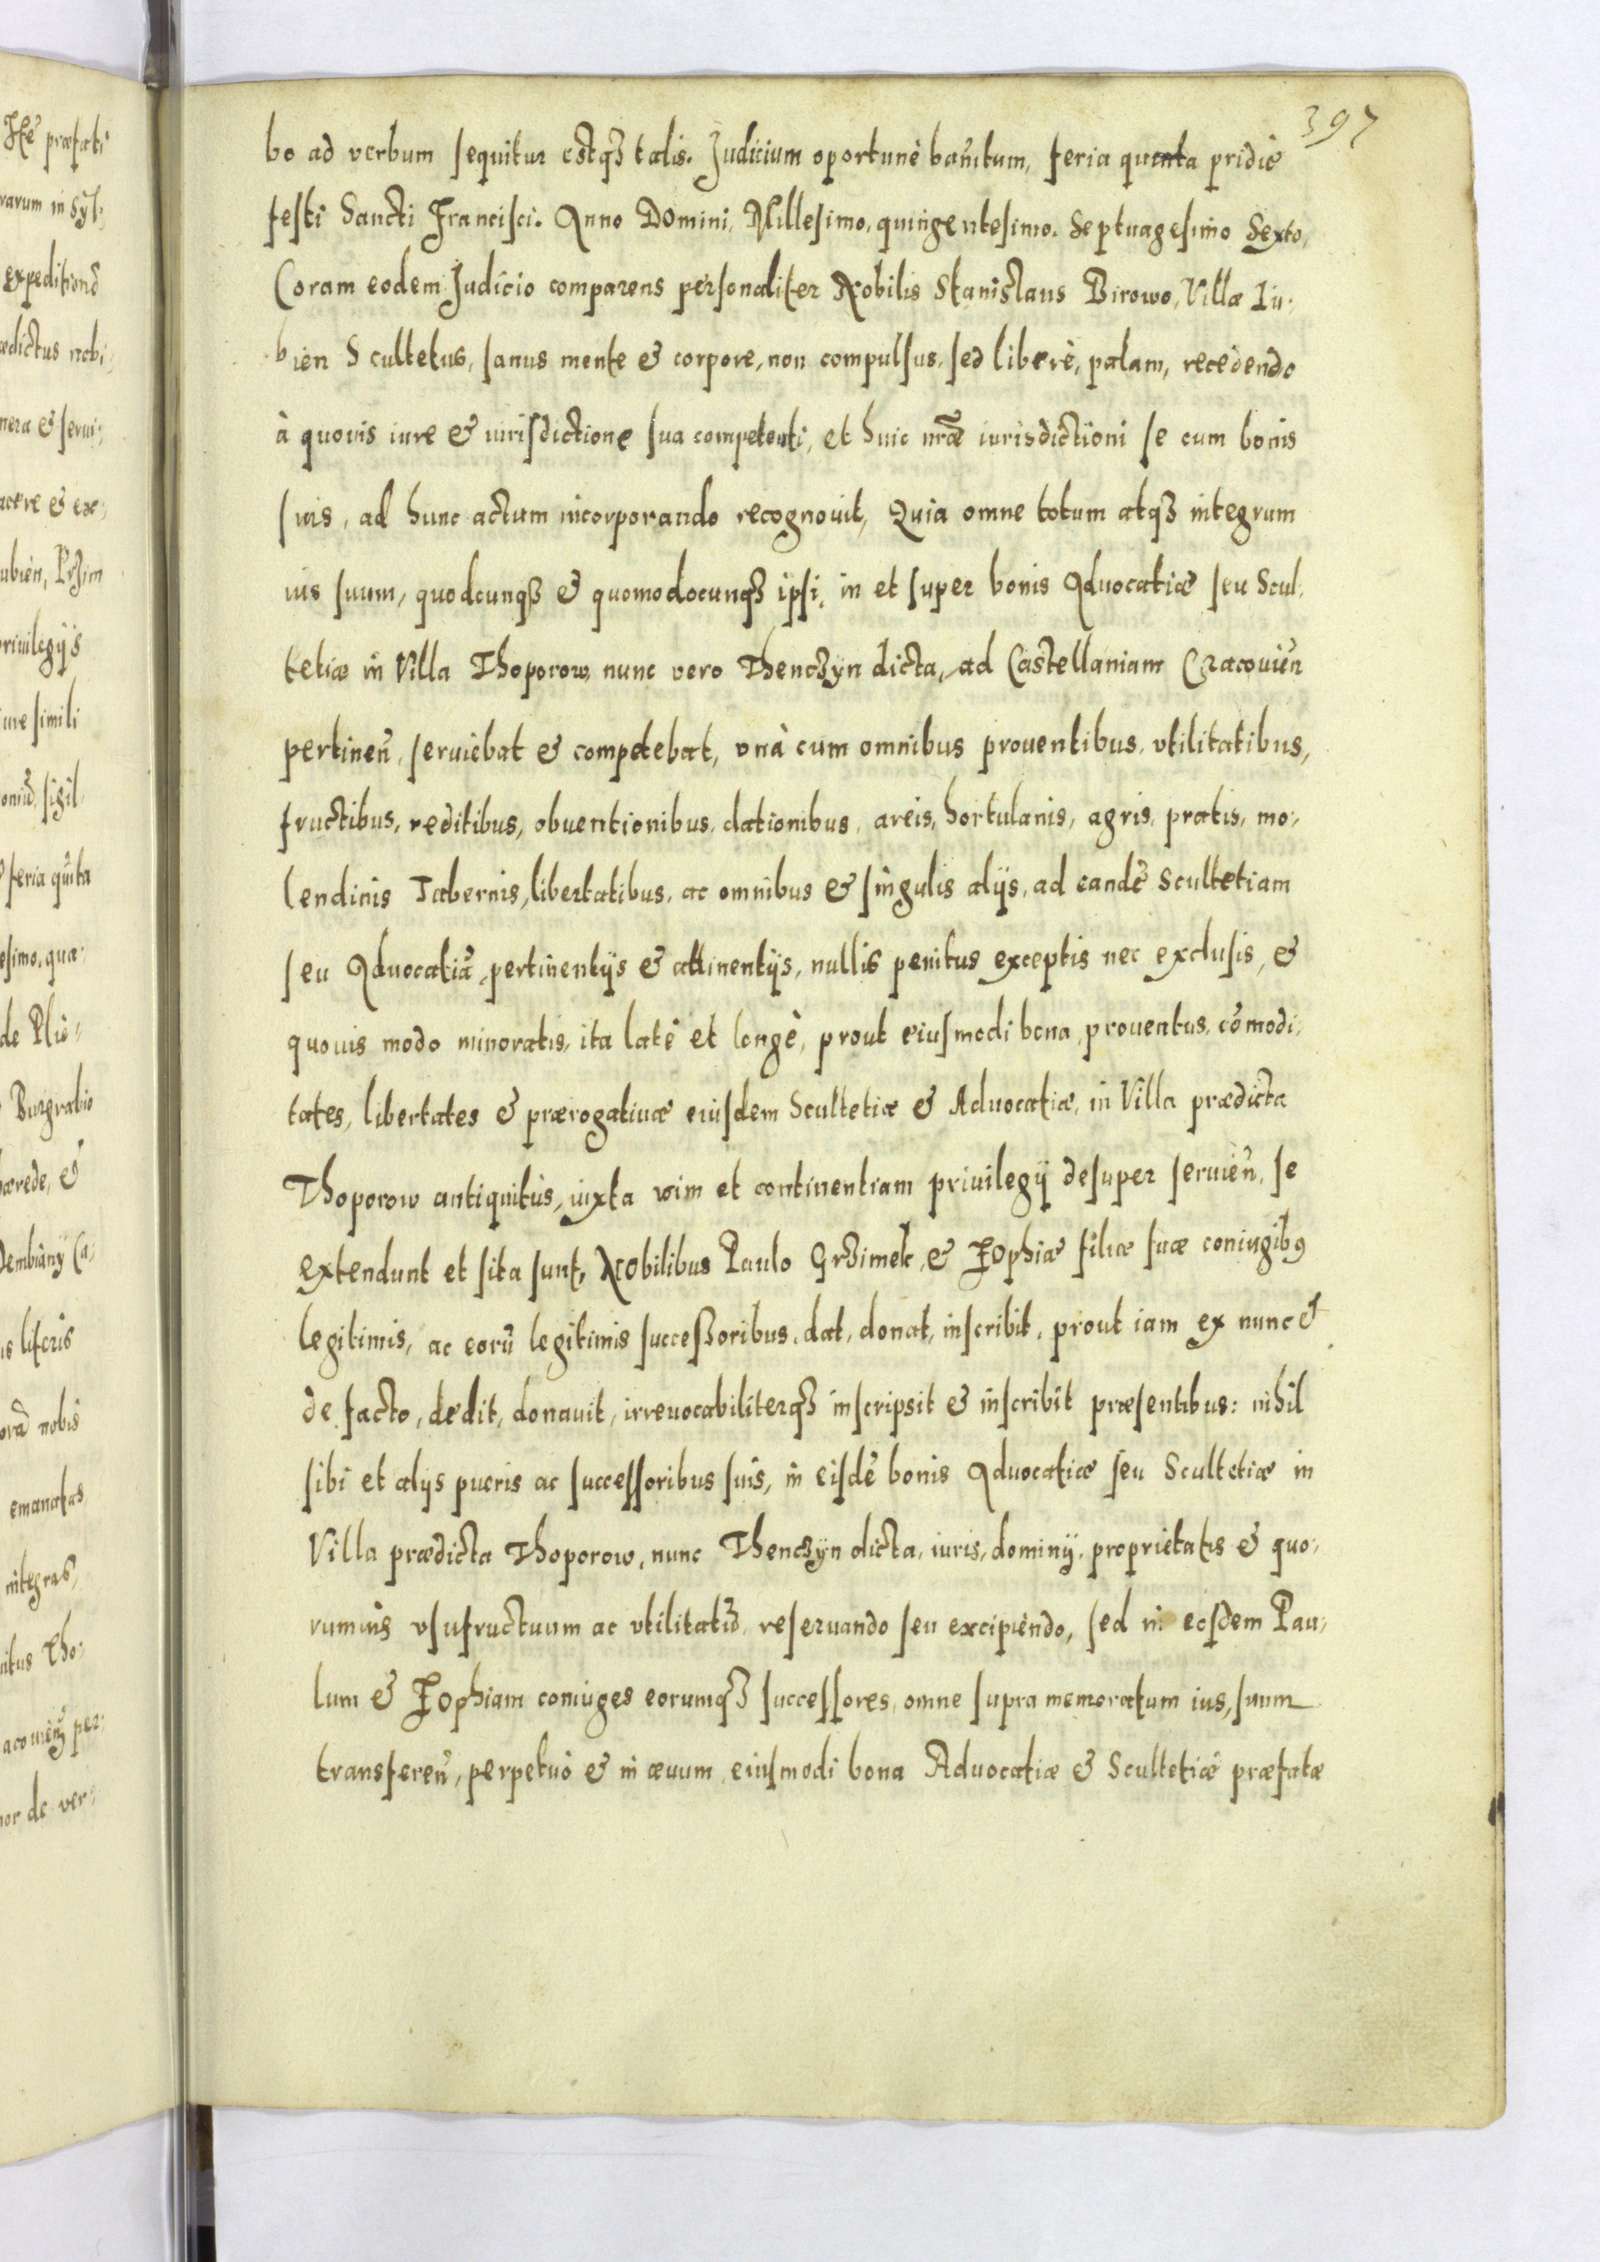 397
bo ad verbum sequitur estqȝ talis. Judicium oportunè bañitum, feria quinta pridie
festi Sancti Francisci. Anno Domini, Millesimo, quingentesimo. Septuagesimo Sexto,
Coram eodem Judicio comparens personaliter Nobilis Stanislaus Birowo, Villæ Iu:
bien Scultetus, sanus mente & corpore, non compulsus, sed liberè, palam, recedendo
à quovis iure & iurisdictione sua competenti, et huic nr̃æ iurisdictioni se cum bonis
suis, ad hunc actum incorporando recognouit, Quia omne totum atqȝ integrum
ius suum, quodcunqȝ & quomodocunqȝ ipsi, in et super bonis Aduocatiæ seu Scul,
tetiæ in Villa Thoporow, nunc vero Thenczyn dicta, ad Castellaniam Cracouien̄
pertinen̄, seruiebat & competebat, vnà cum omnibus prouentibus, vtilitatibus,
fructibus, reditibus, obuentionibus, dationibus, areis, hortulanis, agris, pratis, mo:
lendinis Tabernis, libertatibus, ac omnibus & singulis alijs, ad eandē Scultetiam
seu Aduocatiā, pertinentijs & attinentijs, nullis penitus exceptis nec exclusis, &
quouis modo minoratis, ita latè et longè, prout eiusmodi bona, prouentus, cōmodi:
tates, libertates & prærogatiuæ eiusdem Scultetiæ & Aduocatiæ, in Villa prædicta
Thoporow antiquitùs, iuxta vim et continentiam priuilegij desuper seruien̄, se
extendunt et sita sunt, Nobilibus Paulo Grzimek, & Zophiæ filiæ suæ coniugibꝰ
legitimis, ac eorū legitimis successoribus, dat, donat, inscribit, prout iam ex nunc &
de facto, dedit, donauit, irreuocabiliterqȝ inscripsit & inscribit præsentibus: nihil
sibi et alijs pueris ac successoribus suis, in eisdē bonis Aduocatiæ seu Scultetiæ in
Villa prædicta Thoporow, nunc Thenczyn dicta, iuris, dominij, proprietatis & quo:
rumuis vsufructuum ac vtilitatū, reseruando seu excipiendo, sed in eosdem Pau:
lum & Zophiam coniuges eorumqȝ successores, omne supra memoratum ius, suum
transferen̄, perpetuò & in æuum, eiusmodi bona Aduocatiæ & Scultetiæ præfatæ